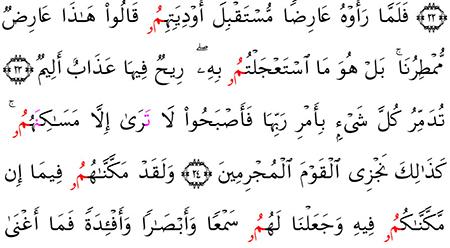 ﴿٢٢﴾ فَلَمَّا رَأَوْهُ عَارِضٗا مُّسْتَقْبِلَ أَوْدِيَتِهِمُۥ قَالُواْ هَٰذَا عَارِضٞ
مُّمْطِرُنَاۚ بَلْ هُوَ مَا اَسْتَعْجَلْتُمُۥ بِهِۦۖ رِيحٞ فِيهَا عَذَابٌ أَلِيمٞ ﴿٢٣﴾
تُدَمِّرُ كُلَّ شَيْءِۢ بِأَمْرِ رَبِّهَا فَأَصْبَحُواْ لَا تَرَىٰ إِلَّا مَسَٰكِنَهُمُۥۚ
كَذَٰلِكَ نَجْزِى اَلْقَوْمَ اَلْمُجْرِمِينَ ﴿٢٤﴾ وَلَقَدْ مَكَّنَّٰهُمُۥ فِيمَا إِن
مَّكَّنَّٰكُمُۥ فِيهِ وَجَعَلْنَا لَهُمُۥ سَمْعٗا وَأَبْصَٰرٗا وَأَفْـِٔدَةٗ فَمَا أَغْنَىٰ